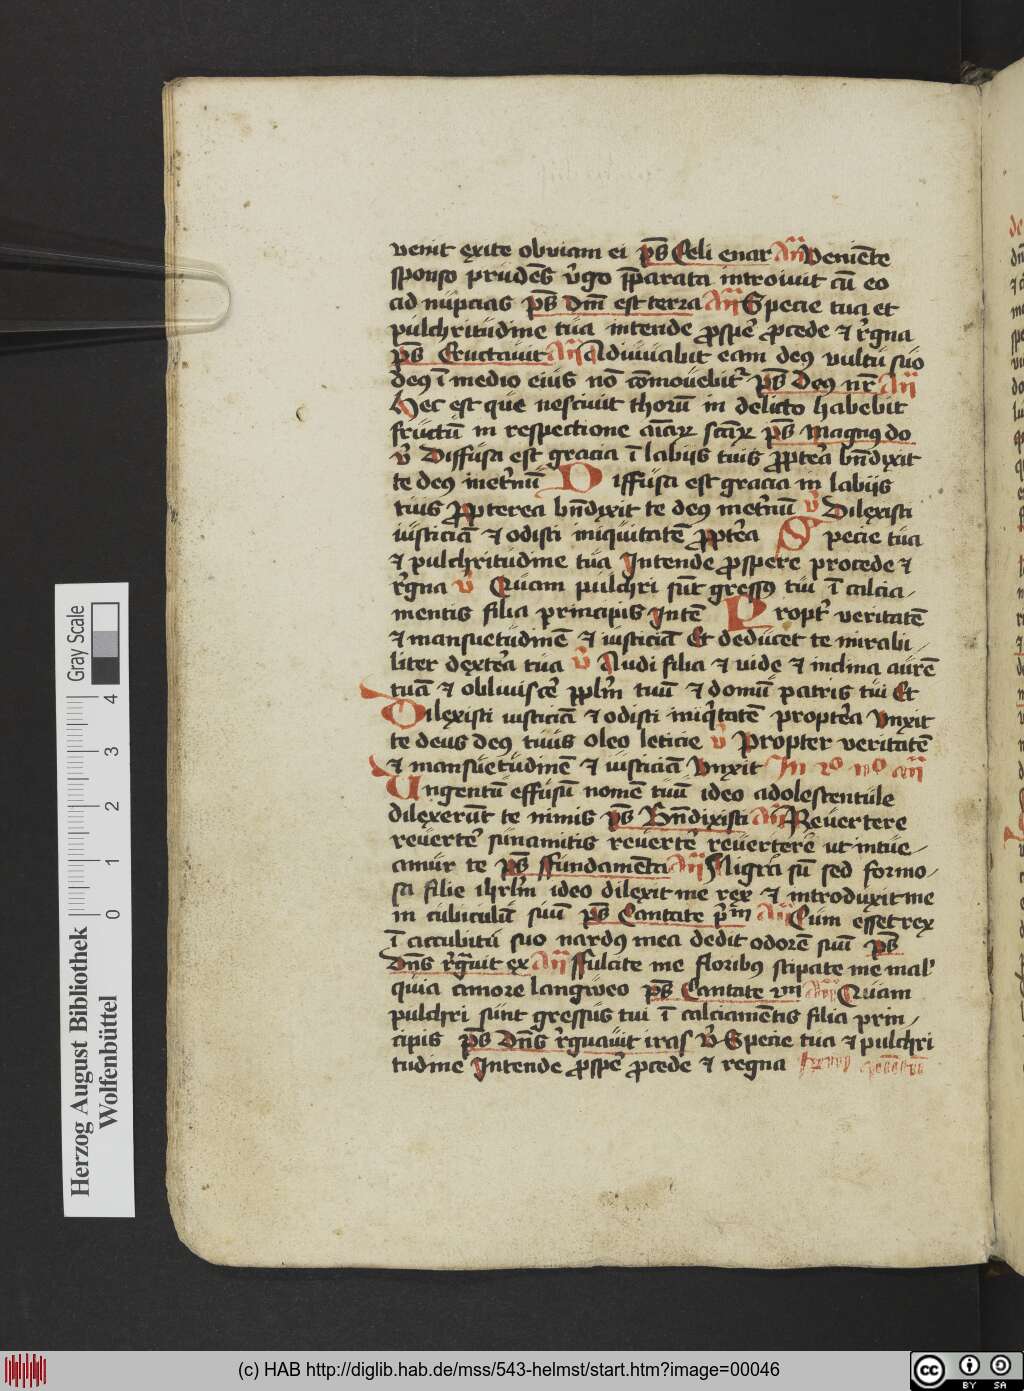 venit exite obviam ei ps Celi enar an Veniente
sponso prudes v̓go p̄parata introivit cū eo
ad nupcias ps dm̄ est terra an Specie tua et
pulchritudine tua intende ꝓspe᷒ ꝓcede ⁊ r̓gna
ps Eructavit an Adiuvabit eam deꝰ vultu suo
deꝰ ī medio eius nō cōmovebit᷒ ps deꝰ nr̄ an
Hec est que nescivit thorū in delicto habebit
fructū in respectione aīaꝝ sc̄aꝝ ps Magnꝰ do
v̓ Diffusa est gracia ī labiis tuis ꝓpte᷒a bn̄dixit
te deꝰ inet᷒nū Diffusa est gracia in labiis
tuis ꝓpterea bn̄dixit te deꝰ inet᷒nū v̓ Dilexisti
iusticiā ⁊ odisti iniquitatē ꝓpte᷒a Specie tua
⁊ pulchritudine tua Intende ꝓspere procede ⁊
r̓gna v̓ Quam pulchri sūt gressꝰ tui ī calcia-
mentis filia principis Intē Propt᷒ veritatē
⁊ mansuetudinē ⁊ iusticiā Et deducet te mirabi-
liter dexte᷒a tua v̓ Audi filia ⁊ vide ⁊ inclina aurē
tuā ⁊ obliuisce᷒ pplm̄ tuū ⁊ domū patris tui Et
Dilexisti iusticiā ⁊ odisti iniq̓tatē propte᷒a Vnxit
te deus deꝰ tuus oleo leticie v̓ Propter veritatē
⁊ mansuetudinē ⁊ iusticiā Vnxit In 2o no an
Ungentū effusū nomē tuū ideo adolescentule
dilexerūt te nimis ps Bn̄dixisti an Revertere
reverte᷒ sunamitis reverte᷒ revertere᷒ ut intue-
amur te ps ffundamēta an Nigra sū sed formo-
sa filie ihrlm̄ ideo dilexit me rex ⁊ introduxit me
in cubiculū suū ps Cantate p̓m an Cum esset rex
ī accubitu suo nardꝰ mea dedit odorē suū ps
Dn̄s r̓gnavit ex an ffulcite me floribꝰ stipate me mal᷒
quia amore langweo ps Cantate an Quam
pulchri sunt gressus tui ī calciamētis filia prin-
cipis ps Dn̄s r̓gnavit iras v̓ Specie tua ⁊ pulchri
tudine Intende ꝓspe᷒ ꝓcede ⁊ regna
Gray Scale
0 1 2 3 4
Herzog August Bibliothek
Wolfenbüttel
(c) HAB http://diglib.hab.de/mss/543-helmst/start.htm?image=00046
cc BY SA